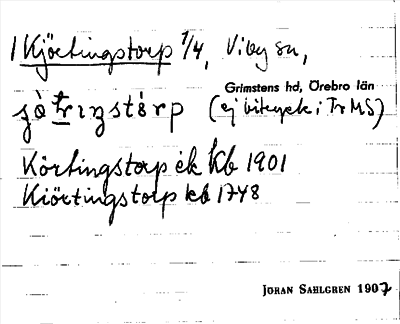 1 Kjörtingstorp 1/4, Viby sn,
Grimstens hd, Örebro län
(ej bitryck i Tr MS)
Körtingstorp ek Kb 1901
Kiörtingstorp kb 1748
JÖRAN SAHLGREN 1907